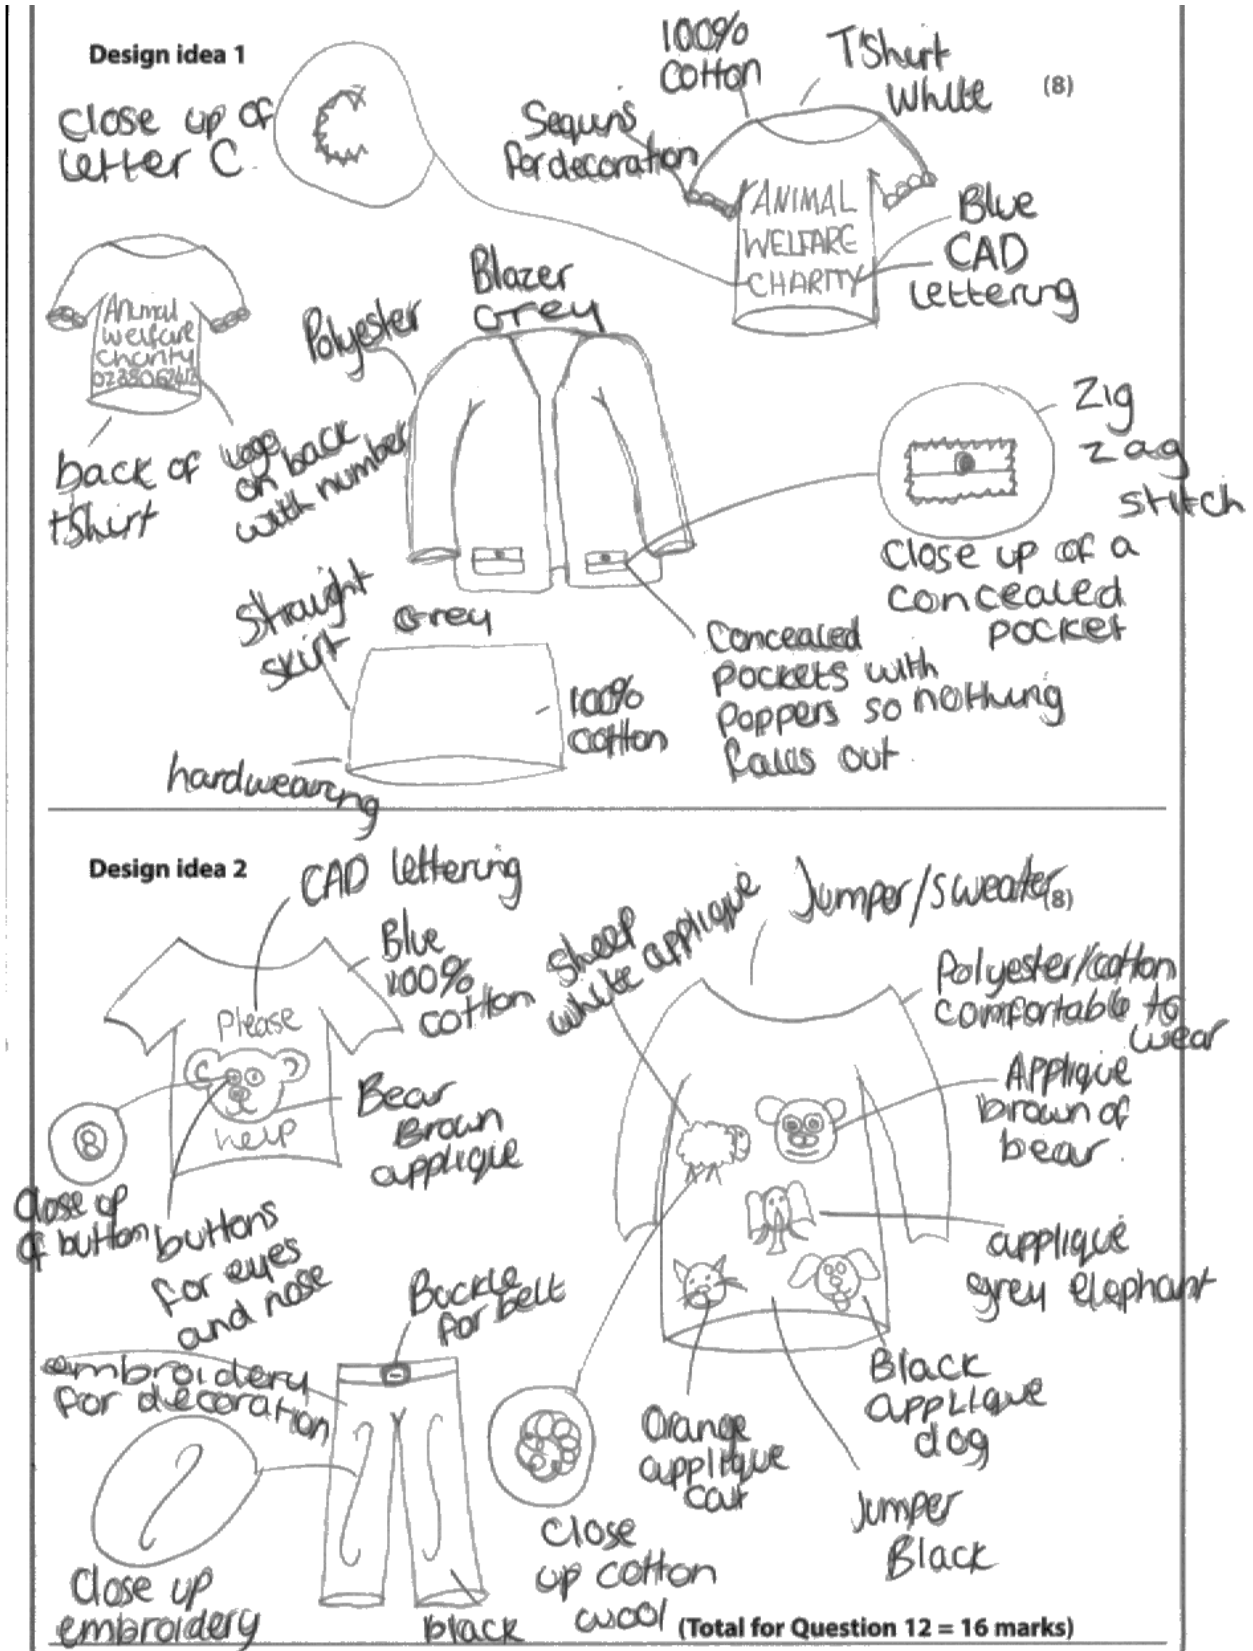 Design idea 1
(8)
Close up of
letter C
100%
Cotton
TShirt
White
Sequins
for decoration
ANIMAL
WELFARE
CHARITY
Blue
CAD
lettering
Animal
welfare
charity
back of
tshirt
Logo
on back
with number
Polyester
Blazer
Grey
Zig
zag
stitch
Close up of a
concealed
pocket
Concealed
pockets with
poppers so nothing
falls out
Straight
skirt
Grey
100%
cotton
hardwearing
Design idea 2
(8)
CAD lettering
Blue
100%
cotton
Please
help
Bear
Brown
applique
Close up
of button
buttons
for eyes
and nose
Sheep
white applique
Jumper/sweater
Polyester/cotton
comfortable to
wear
Applique
brown of
bear
applique
grey elephant
Black
applique
dog
Orange
applique
cat
Jumper
Black
Close
up cotton
wool
Buckle
for belt
embroidery
for decoration
Close up
embroidery
black
(Total for Question 12 = 16 marks)